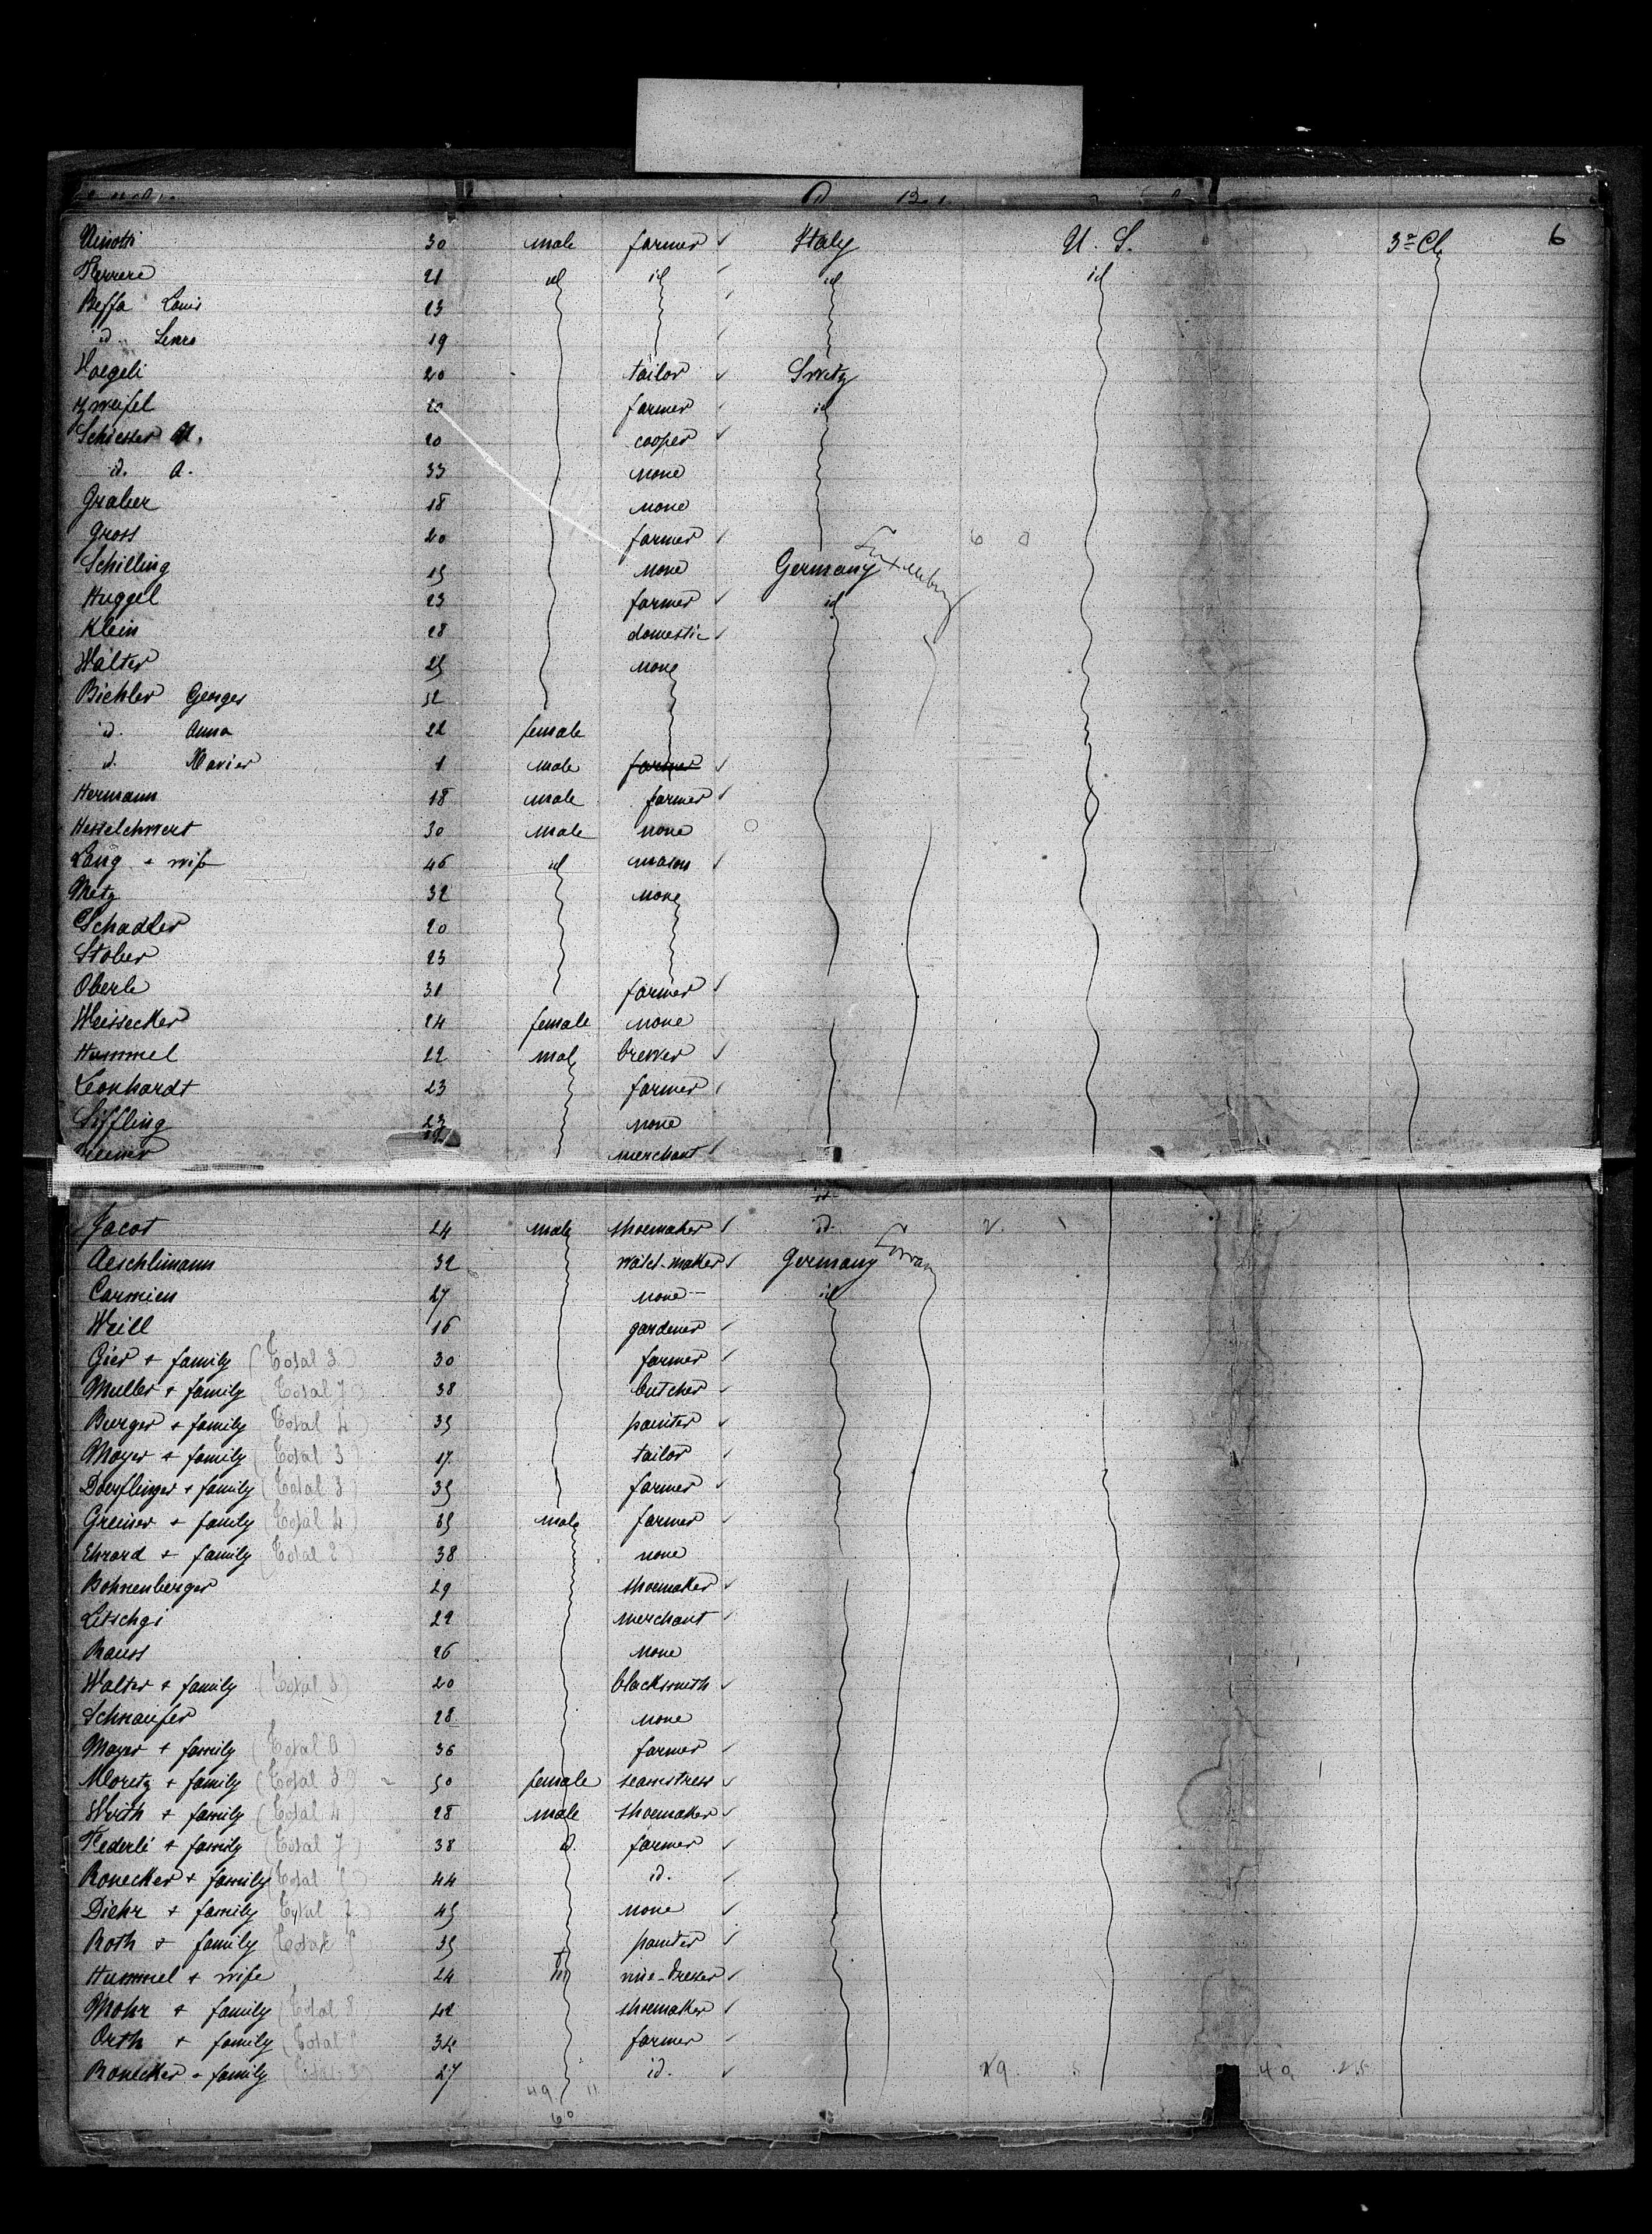 Ninotti 30 male farmer ✓ Italy U. S. 3e Cl 6
Ferrere 21 id id ✓ id id
Beffa Louis 23 ✓
id. 19 ✓
Haegeli 20 tailor ✓ Switz
Zweifel 20 farmer ✓ id
Schiesser 20 cooper ✓
id. A. 33 none
Graber 18 none
Gross 20 farmer ✓
Schilling 19 none Germany
Huggel 23 farmer ✓ id
Klein 28 domestic ✓
Walter 25 none
Bichler Georges 52
id. Anna 22 female
id. Xavier 1 male farmer ✓
Hermann 18 male farmer ✓
Hesselchwert 30 male none
Lang + wife 46 id mason ✓
Metz 32 none
Schadler 20
Stober 23
Oberle 31 farmer ✓
Weissecker 24 female none
Hummel 22 male brewer ✓
Leonhardt 23 farmer ✓
Siffling 23 none
merchant ✓
Jacot 24 male shoemaker ✓ id.
Aeschlimann 32 watch-maker ✓ Germany
Carmien 27 none id
Weill 16 gardener ✓
Gier + family (Total 3) 30 farmer ✓
Muller + family (Total 7) 38 butcher ✓
Burger + family (Total 4) 35 painter ✓
Mayer + family (Total 3) 17 tailor ✓
Doerflinger + family (Total 3) 35 farmer ✓
Greiner + family (Total 4) 35 male farmer ✓
Ehrard + family (Total 2) 38 none
Bohnenberger 29 shoemaker ✓
Litschgi 22 merchant ✓
Rauss 26 none
Walter + family (Total 3) 20 blacksmith ✓
Schnaufer 28 none
Mayer + family (Total 36 farmer ✓
Moretz + family (Total 3) 50 female seamstress ✓
Wirth + family (Total 4) 28 male shoemaker ✓
Federlé + family (Total 7) 38 id. farmer ✓
Ronecker + family (Total 44 id. ✓
Diehr + family (Total 2) 45 none ✓
Roth + family (Total 35 painter ✓
Hummel + wife 24 vine-dresser ✓
Mohr + family (Total 8) 42 shoemaker ✓
Orth + family (Total 34 farmer ✓
Ronecker + family (Total 3) 27 id. ✓
49 11
60